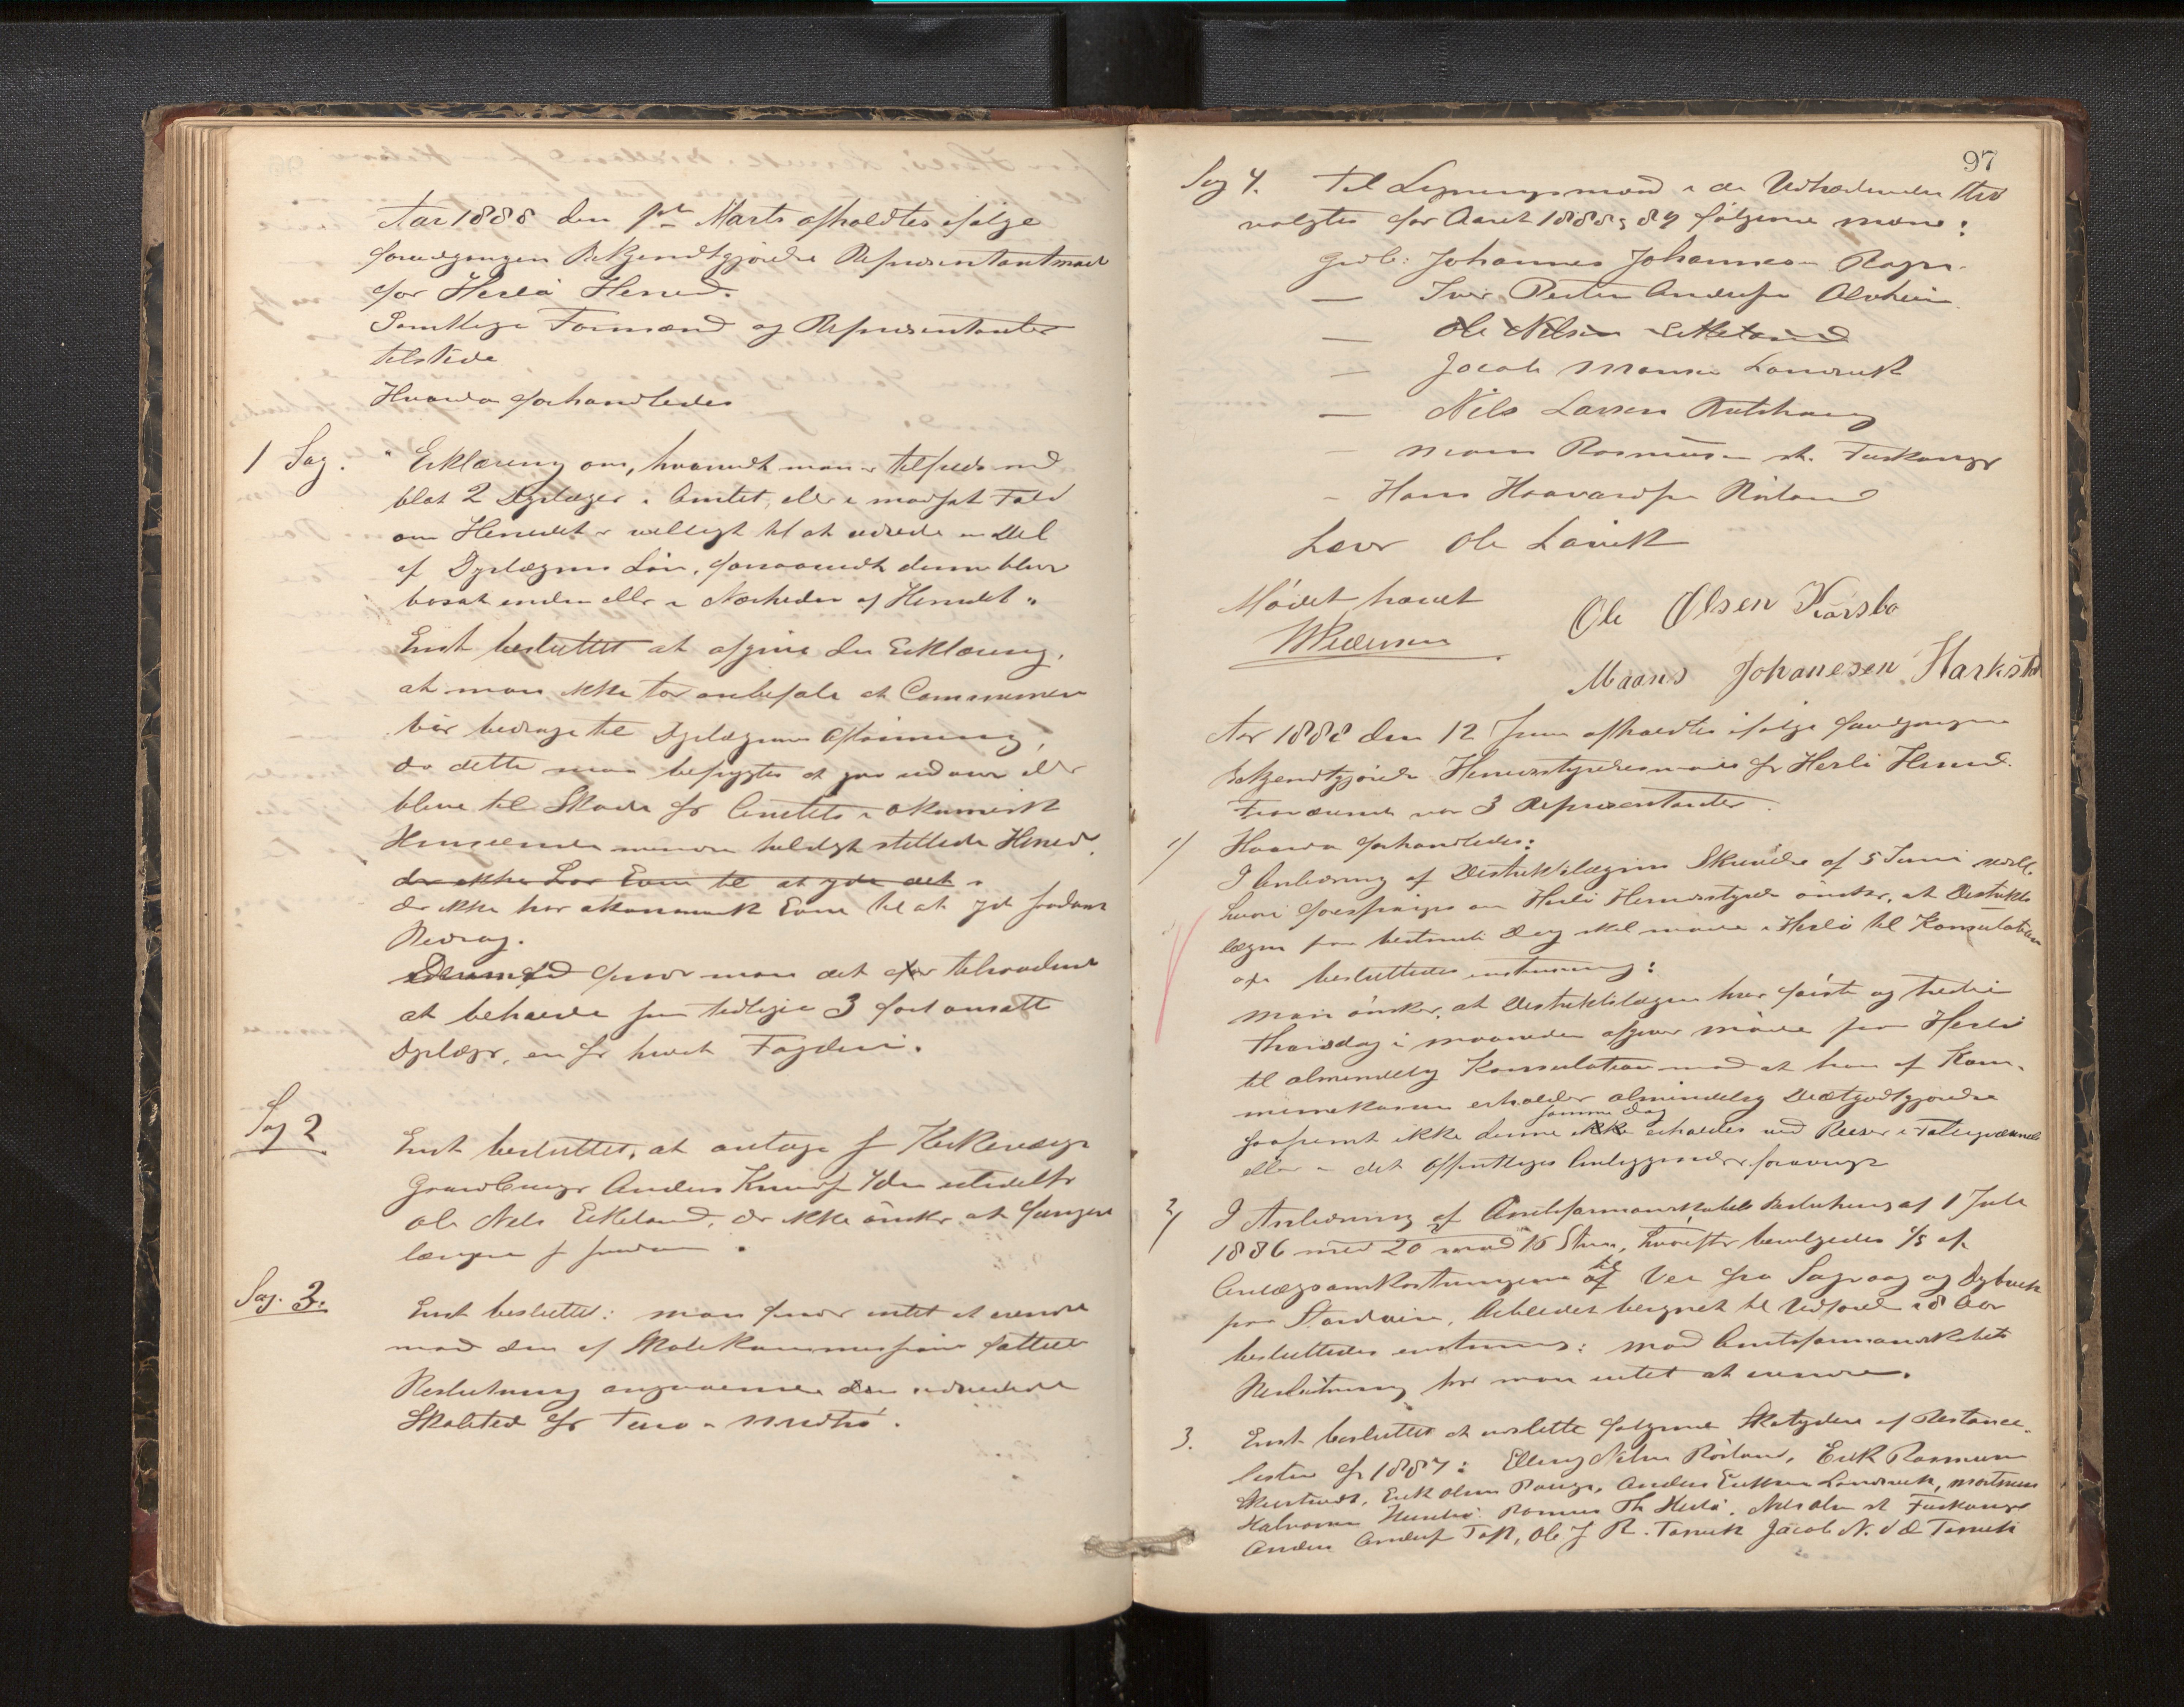 Aar 1888 den 1ste Marts afholdtes ifølge
foregangen Bekjendtgjørelse Repræsentantmøde
for Herlø Herred.
Samtlige Formænd og Repræsentanter
tilstede
Hvorda forhandledes
1 Sag. "Erklæring om, hvorvidt man er tilfreds med
blot 2 Dyrlæger i Amtet, eller i modsat Fald
om Herredet er villigt til at udrede en Del
af Dyrlægens Løn, forsaavidt denne blev
bosat enden eller i Nærheden af Herredet"
Enst besluttet at afgive den Erklæring,
at man ikke tør anbefale at Communen
bør bedrage til Dyrlægens Aflønning,
da dette maa befrygtes at
blive til Skade for Amtets i økonomisk
Henseende mindre heldigt stillede Herred,
der ikke har Evne til at yde det.
der ikke har økonomisk Evne til at yde saadant
Bidrag.
finder man det tilraadeligt
at beholde som tidligere 3 fast ansatte
Dyrlæger, en for hvert Fogderi.
Sag 2
Enst besluttet, at antage Kirkeværge
Gaardbruger Anders Knuds
Ole Nels Eikeland, der ikke ønsker at fungere
længere som saadan.
Sag. 3.
Enst besluttet: man finder intet at erindre
mod den af Skolekommissionen fattede
Beslutning angaaende den
Skolested for
97
Sag 4. Til Ligningsmænd i de
valgtes for Aaret 1888 & 89 følgende Mænd:
Grdb: Johannes Johannesen
— Iver Anders Alvheim
— Ole Nilsen Eikeland
— Jacob Monsen Landsvik
— Nils Larsen
— Mons Rasmussen st. Fuskanger
— Hans Haavards
Ole Larvik
Mødet hævet
Ole Olsen
Maans Johanesen
Aar 1888 den 12 Juni afholdtes ifølge foregangen
Bekjendtgjørelse Herredsstyremøde for Herlø Herred.
Fraværende var 3 Repræsentanter.
1) Hvorda forhandledes:
I Anledning af Distriktslægens Skrivelse af 5 Juni
hvori forespørges om Herlø Herredsstyre ønsker, at Distrikts
lægen paa bestemt Dag skal møde i Herlø til Konsultation
besluttedes enstemmig:
Man ønsker, at Distriktslægen hver første og tredie
Thorsdag i Maaneden afgiver møde paa Herlø
til almindelig Konsultation mod at han af Kom-
munekassen erholder almindelig Diætgodtgjørelse
samme Dag
saafremt ikke denne ikke erholdes ved Reiser i Fattigvæsenets
eller i det Offentliges Anliggender forøvrigt
2) I Anledning af Amtsformandskabets Beslutning af 1 Juli
1886 med 20 mod 16 Stem, hvorefter bevilgedes 1/5 af
til
Anlægsomkostningerne af Vei fra Sagvaag og Dybvik
paa Stordøen, Arbeidet beregnet til Udførelse i 8 Aar
besluttedes enstemmig: mod Amtsformandskabets
Beslutning har man intet at erindre.
3. Enst. besluttet at udslette følgende Skatydere af Restance-
listen for 1887: Elling Nilsen Erik Rasmussen
Erik Olsen Anders Eriksen Landsvik, Mortinus
Halvorsen Rasmus Th Herlø. Nils Olsen st Fuskanger
Anders Anders Toft, Ole J R. Jacob N.